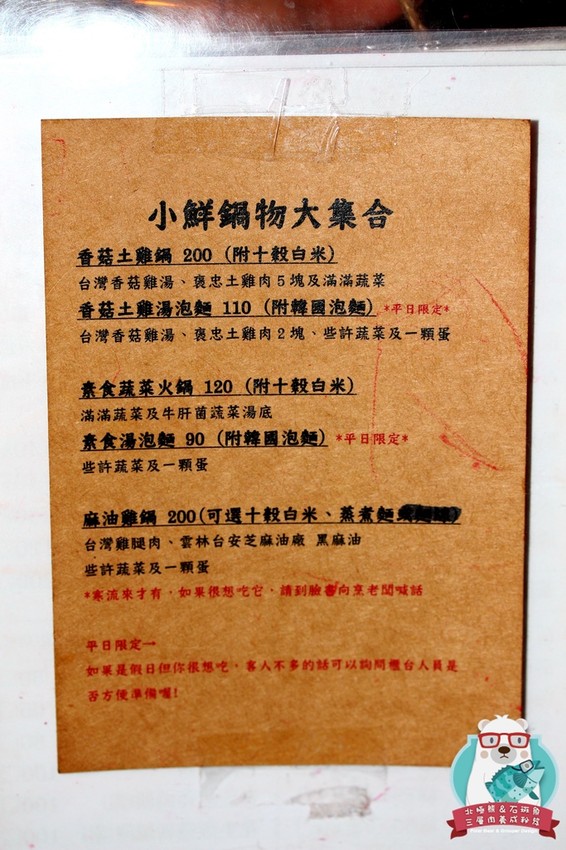 小鮮鍋物大集合
香菇土雞鍋 200 (附十穀白米)
台灣香菇雞湯、褒忠土雞肉5塊及滿滿蔬菜
香菇土雞湯泡麵 110 (附韓國泡麵) *平日限定*
台灣香菇雞湯、褒忠土雞肉2塊、些許蔬菜及一顆蛋
素食蔬菜火鍋 120 (附十穀白米)
滿滿蔬菜及牛肝菌蔬菜湯底
素食湯泡麵 90 (附韓國泡麵) *平日限定*
些許蔬菜及一顆蛋
麻油雞鍋 200(可選十穀白米、蒸煮麵
台灣雞腿肉、雲林台安芝麻油廠 黑麻油
些許蔬菜及一顆蛋
*寒流來才有，如果很想吃它，請到臉書向烹老闆喊話
平日限定→
如果是假日但你很想吃，客人不多的話可以詢問櫃台人員是
否方便準備喔!
北極熊&石斑魚
三層肉養成計程